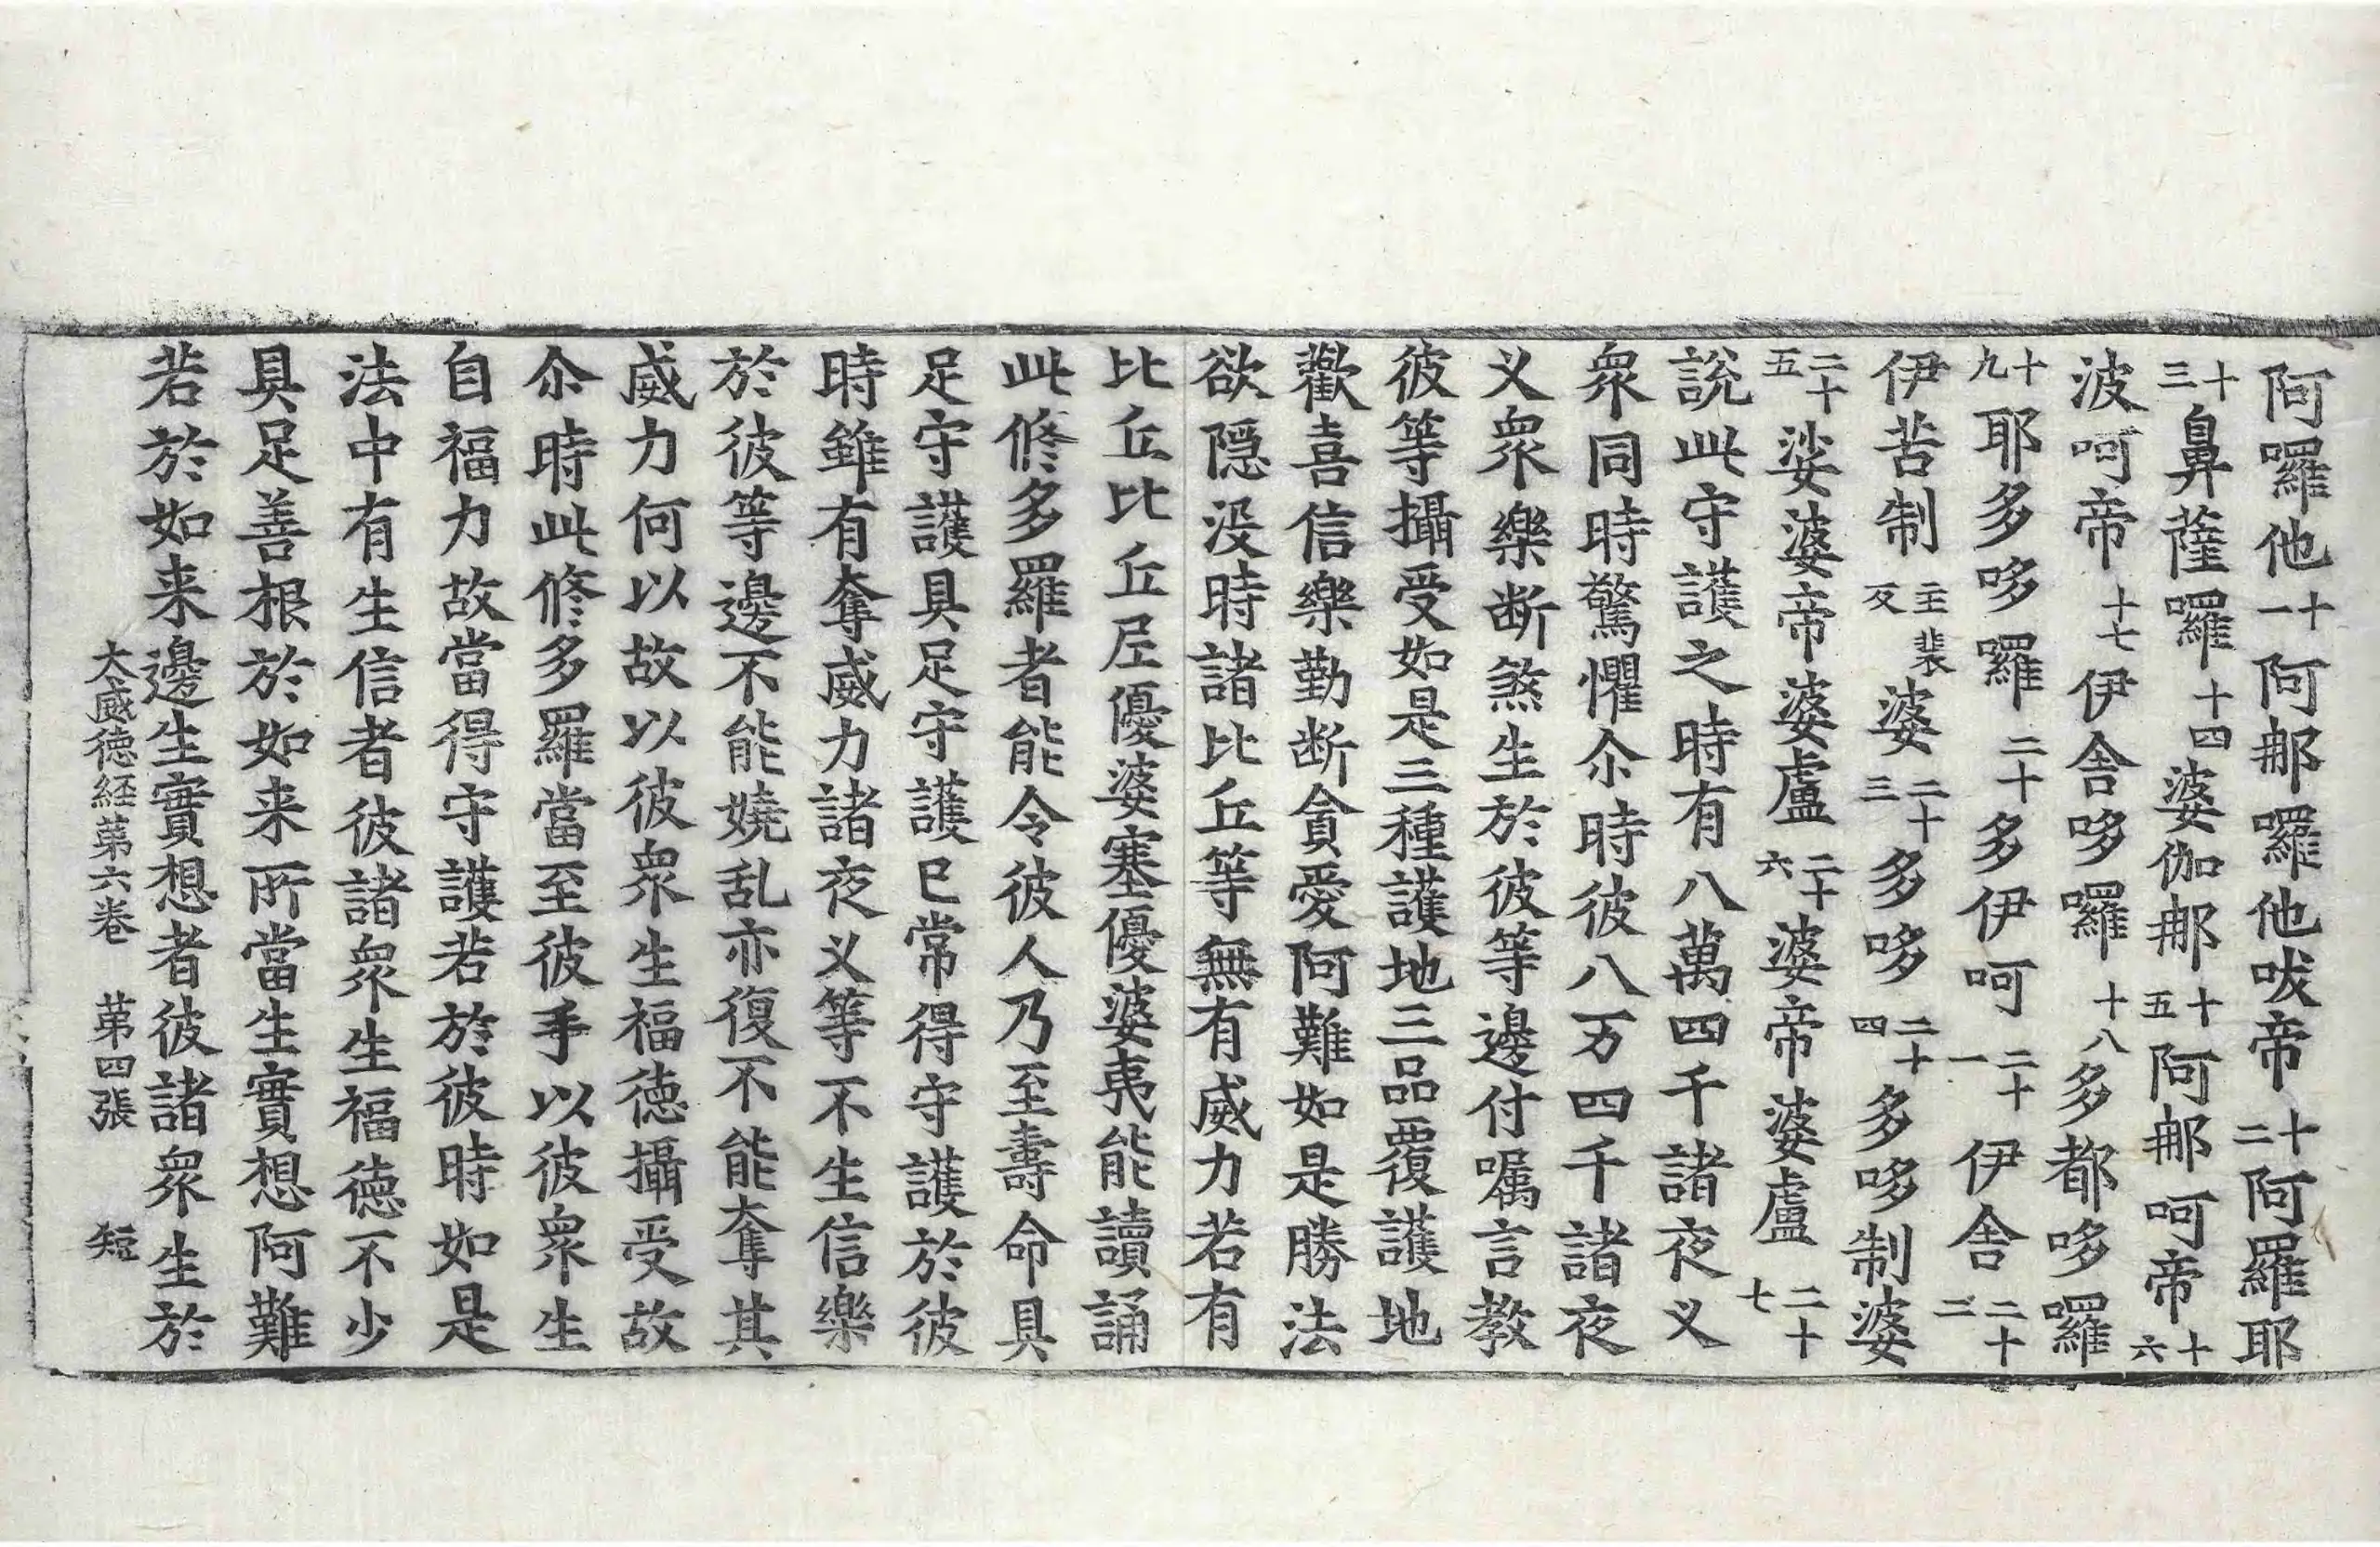 阿囉他十一阿那囉他呅帝十二阿羅耶
十三鼻薩囉十四婆伽那十五阿那呵帝十六
波呵帝十七伊舍哆囉十八多都哆囉
十九耶多哆囉二十多伊呵二十一伊舍二十二
伊苦制主裴反婆二十三多哆二十四多哆制婆
二十五娑婆帝婆盧二十六婆帝婆盧二十七
說此守護之時有八萬四千諸夜叉
眾同時驚懼尒時彼八万四千諸夜
叉眾樂断煞生於彼等邊付囑言教
彼等攝受如是三種護地三品覆護地
歡喜信樂勤断貪愛阿難如是勝法
欲隠没時諸比丘等無有威力若有
比丘比丘尼優婆塞優婆夷能讀誦
此修多羅者能令彼人乃至壽命具
足守護具足守護已常得守護於彼
時雖有奪威力諸夜叉等不生信樂
於彼等邊不能嬈乱亦復不能奪其
威力何以故以彼眾生福徳攝受故
尒時此修多羅當至彼手以彼眾生
自福力故當得守護若於彼時如是
法中有生信者彼諸眾生福徳不少
具足善根於如来所當生實想阿難
若於如来邊生實想者彼諸眾生於
大威徳経苐六卷 苐四張 短